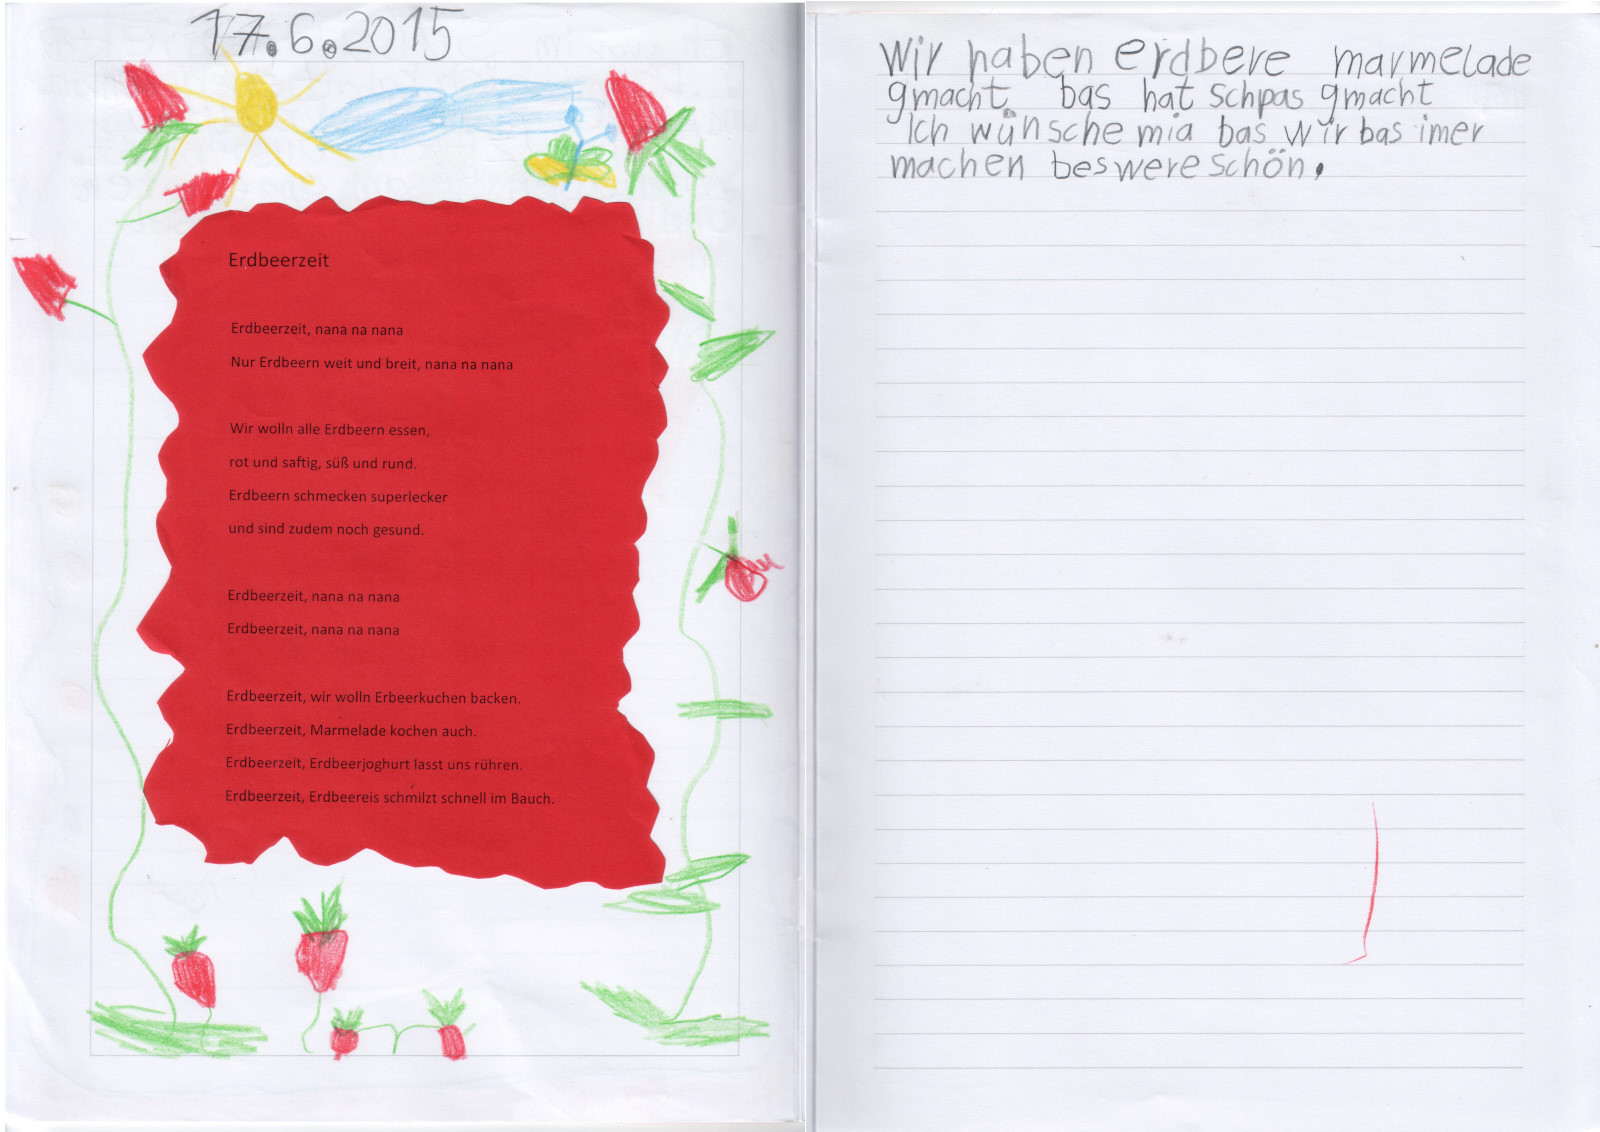 17.6.2015
Erdbeerzeit
Erdbeerzeit, nana na nana
Nur Erdbeern weit und breit, nana na nana
Wir wolln alle Erdbeern essen,
rot und saftig, süß und rund.
Erdbeern schmecken superlecker
und sind zudem noch gesund.
Erdbeerzeit, nana na nana
Erdbeerzeit, nana na nana
Erdbeerzeit, wir wolln Erbeerkuchen backen.
Erdbeerzeit, Marmelade kochen auch.
Erdbeerzeit, Erdbeerjoghurt lasst uns rühren.
Erdbeerzeit, Erdbeereis schmilzt schnell im Bauch.
Wir haben erdbere marmelade
gmacht. bas hat schpas gmacht
Ich wünsche mia bas wir bas imer
machen bes were schön.